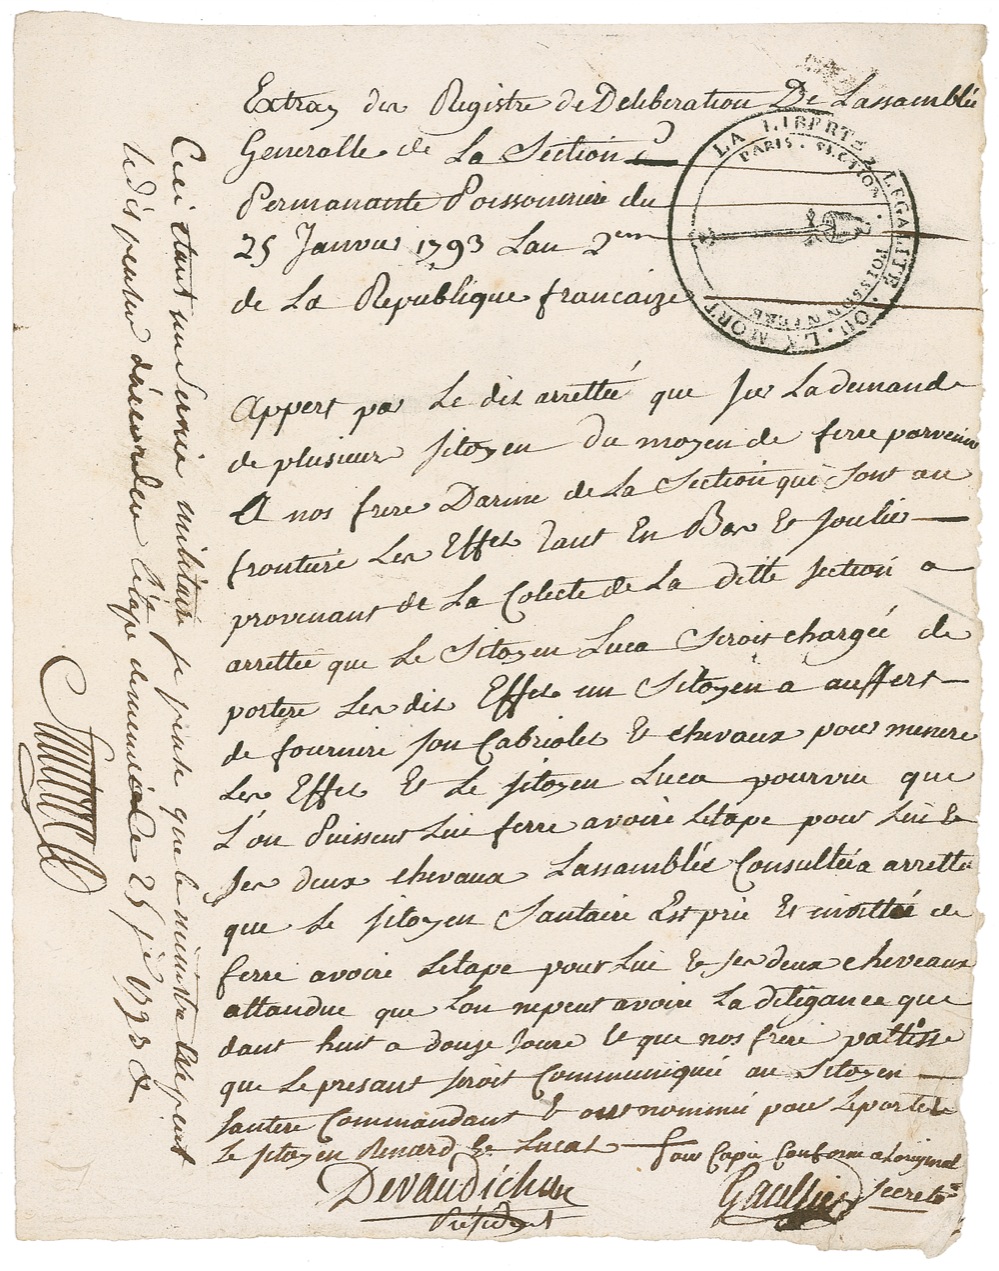 Extray du Registre de Deliberation De Lassamblée
Generalle de La Section
Permanante Poissonniere du
25 Janvier 1793 Lan 2em
de La Republique francaize
LA LIBERTÉ, L'EGALITE. OU. LA MORT
PARIS. SECTION. POISSONNIERE
Appert par Le dit arrettée que Sur La demande
de plusieur Sitoyen du moyen de ferre parvenir
A nos frere Darme de La Section qui Sont au
frontiere Les Effet tant En Bas Et Soulié
provenant de La Colecte de La ditte Section a
arrettée que Le Sitoyen Luca Serois chargée de
portere Les dit Effet un Sitoyen a auffert
de fournire Son Cabriolet Et chevaux pour menere
Les Effet Et Le Sitoyen Luca pourvu que
L'on Puissent Lui ferre avoire Letape pour Lui Et
Ses deux chevaux Lassamblée Consultée a arretté
que Le Sitoyen Santaire Est prié Et invitté de
ferre avoire Letape pour Lui & Ses deux cheveaux
attandue que Lon nepeut avoire La diligance que
dant huit a douze Joure Et que nos frere pattisse
que Le presant Serois Communiquée au Sitoyen
Santere Commandant Et ont nommée pour Le porter
Le Sitoyen Renard Et Lucas
Pour Copie Conforme a Loriginal
Devaudichon
President
Gaullier Secret.re
Ceci étant un Service militaire je pense que le ministre de la guerre
Santerre